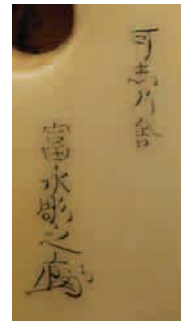 可志川舎
富永彫之